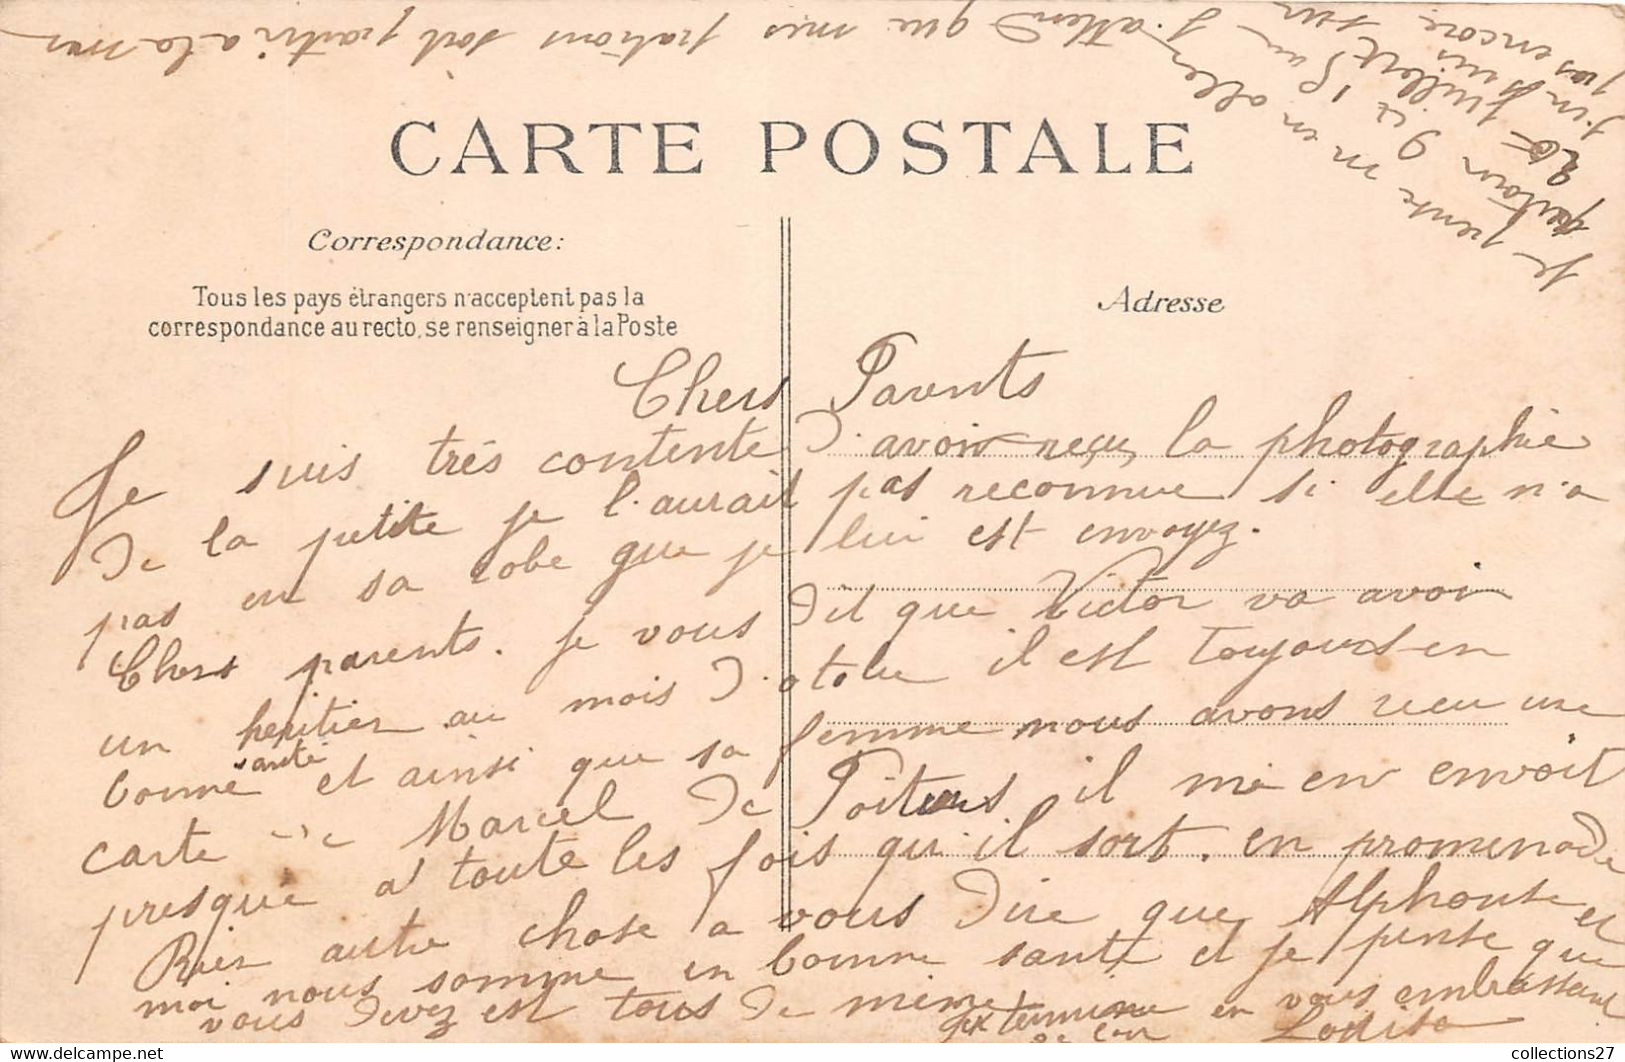 CARTE POSTALE
Correspondance:
Tous les pays étrangers n'acceptent pas la
correspondance au recto, se renseigner à la Poste
Adresse
Chers Parents
Je suis trés contente d'avoir reçus la photographie
de la petite je l'aurait pas reconnue si elle n'a
pas eu sa robe que je lui est envoyez.
Chers parents. je vous dit que Victor va avoir
un heritier au mois d'otobre il est toujours en
bonne santé et ainsi que sa femme nous avons recu une
carte de Marcel de Poitiers il m'en envoit
presque a toute les fois qu'il sort. en promenade
Rien autre chose a vous dire que Alphonse et
moi nous somme en bonne santé et je pense que
vous devez est tous de même
Je termine en vous embrassant
de cœur Louise
Je pense m en allez
autour du 15 au
20 Juillet
j'en suis
pas encore sur
J'attend que mes patrons soit partri a la mer